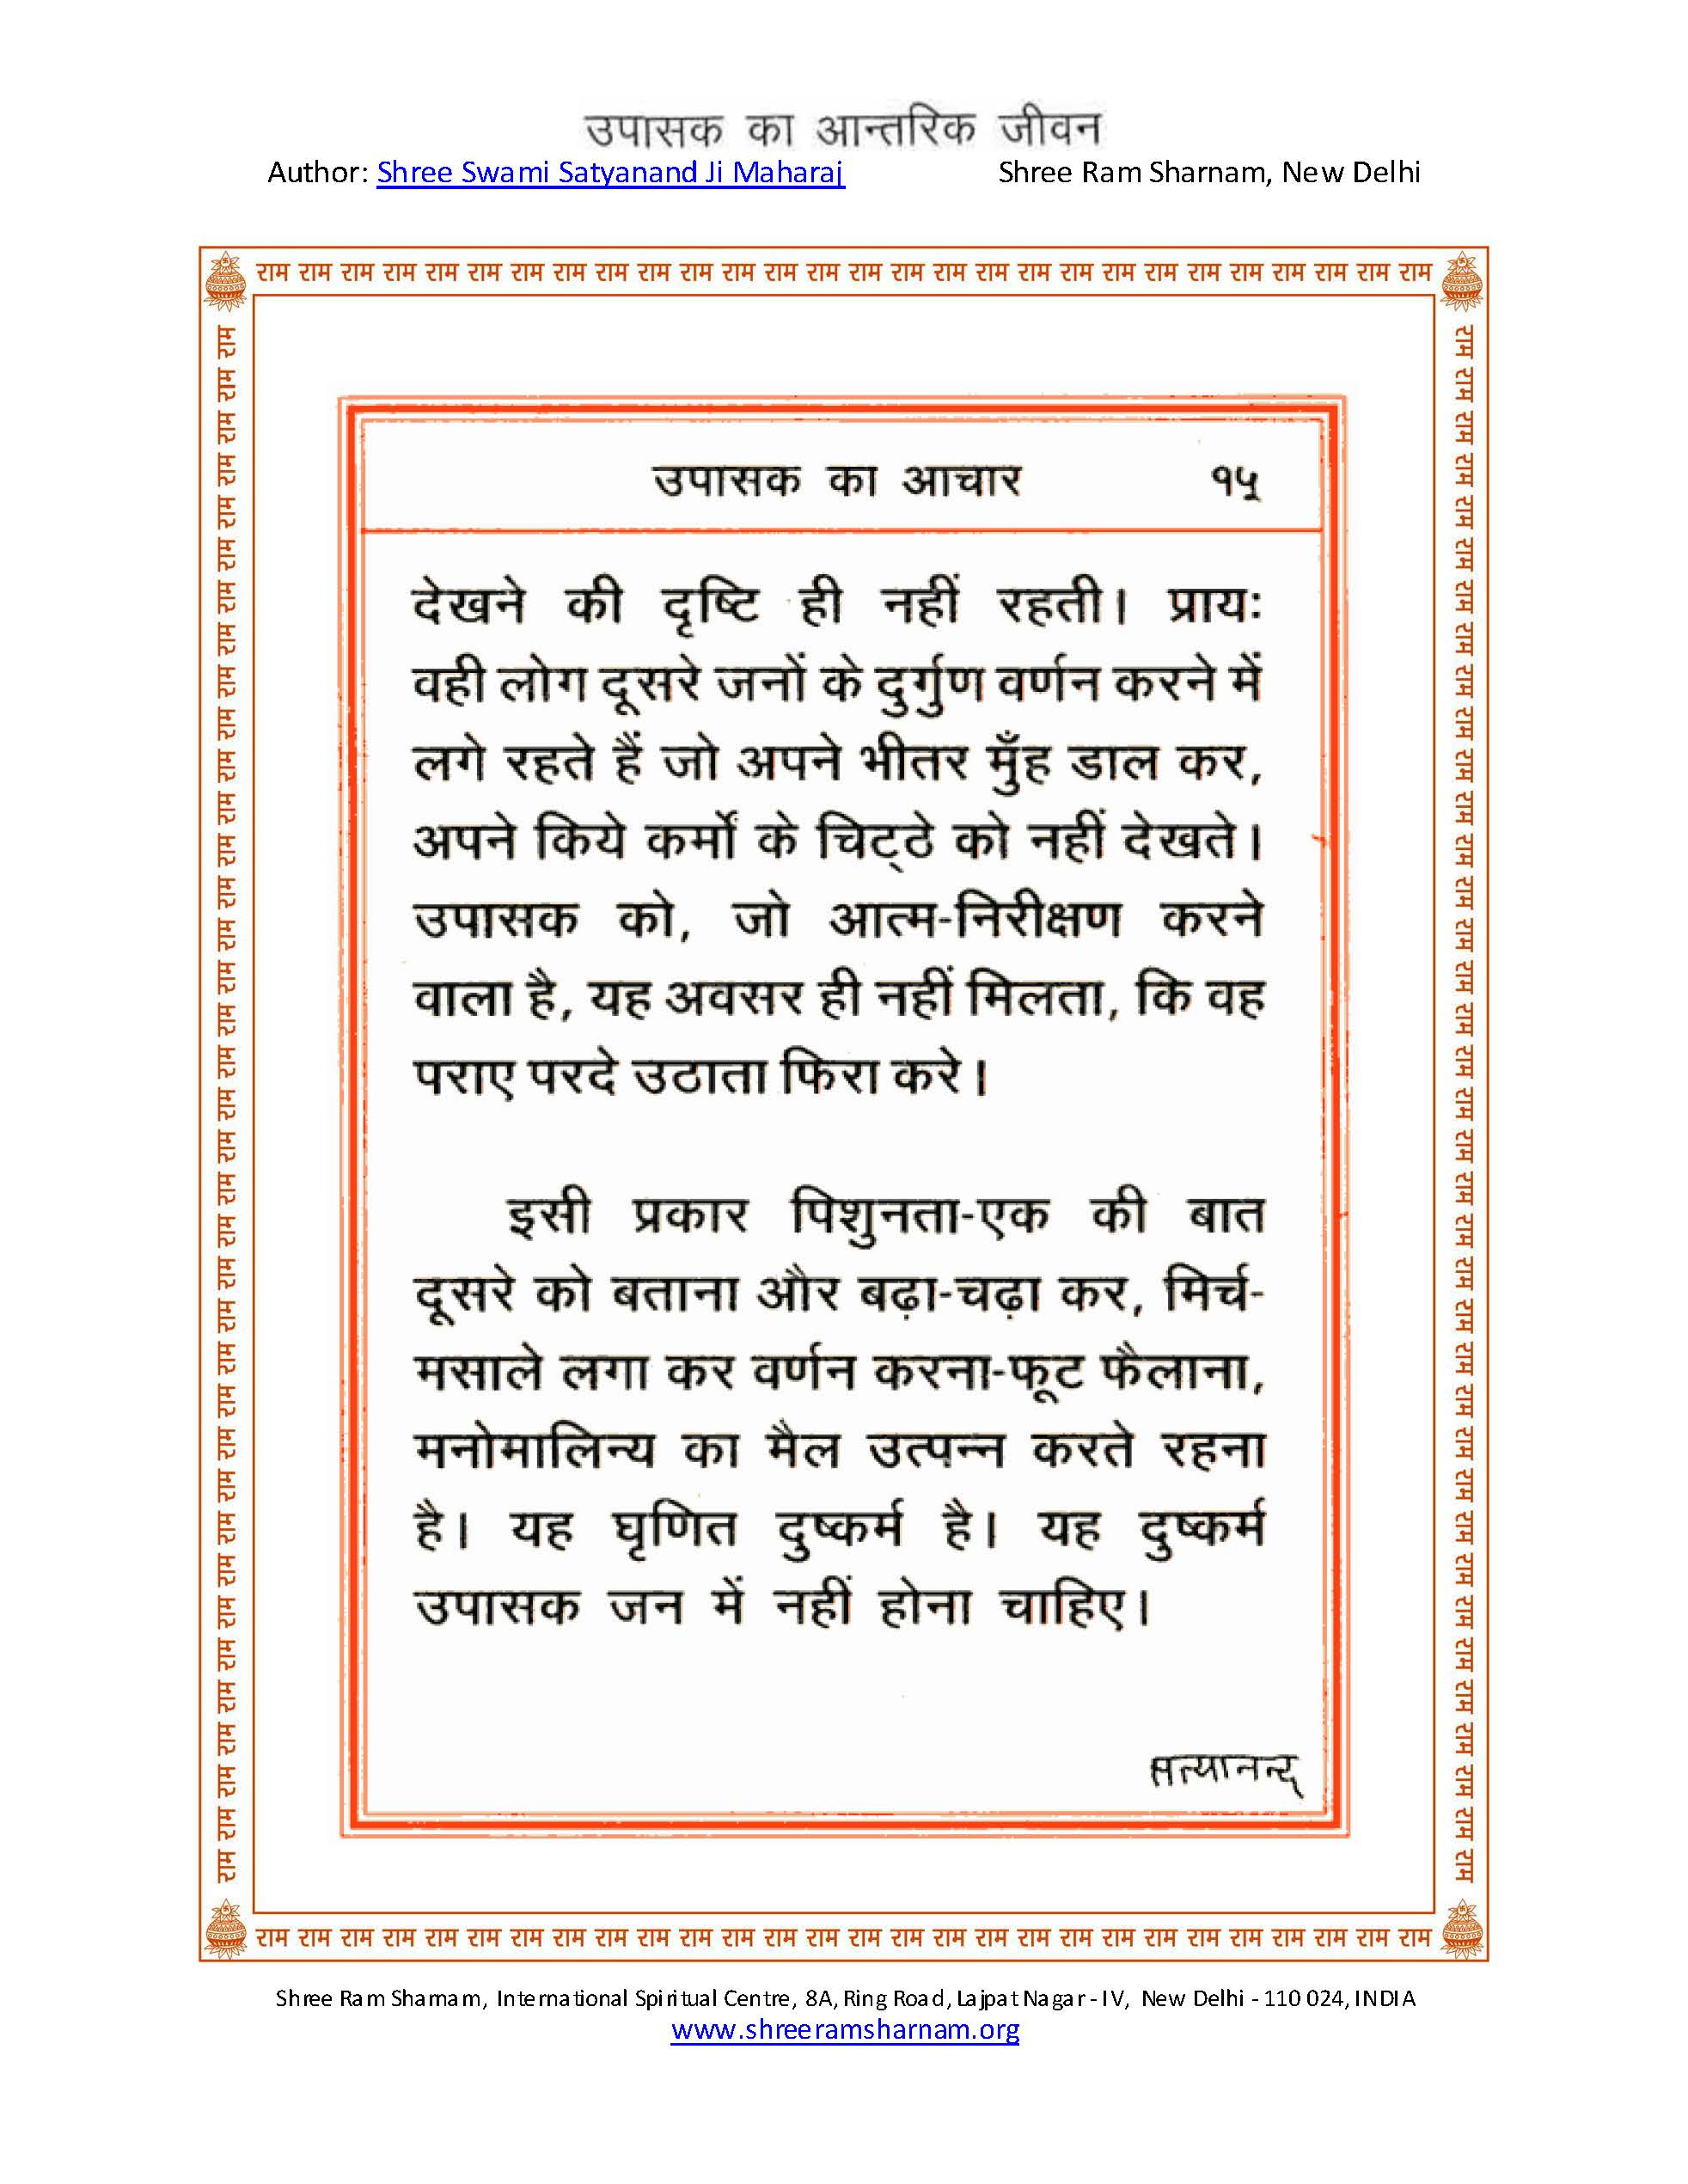 उपासक का आन्तरिक जीवन
Author: Shree Swami Satyanand Ji Maharaj Shree Ram Sharnam, New Delhi
राम राम राम राम राम राम राम राम राम राम राम राम राम राम राम राम राम राम राम राम राम राम राम राम राम राम राम राम
उपासक का आचार १५
देखने की दृष्टि ही नहीं रहती। प्रायः
वही लोग दूसरे जनों के दुर्गुण वर्णन करने में
लगे रहते हैं जो अपने भीतर मुँह डाल कर,
अपने किये कर्मों के चिट्ठे को नहीं देखते।
उपासक को, जो आत्म-निरीक्षण करने
वाला है, यह अवसर ही नहीं मिलता, कि वह
पराए परदे उठाता फिरा करे।
इसी प्रकार पिशुनता-एक की बात
दूसरे को बताना और बढ़ा-चढ़ा कर, मिर्च-
मसाले लगा कर वर्णन करना-फूट फैलाना,
मनोमालिन्य का मैल उत्पन्न करते रहना
है। यह घृणित दुष्कर्म है। यह दुष्कर्म
उपासक जन में नहीं होना चाहिए।
सत्यानन्द
राम राम राम राम राम राम राम राम राम राम राम राम राम राम राम राम राम राम राम राम राम राम राम राम राम राम राम राम
राम राम राम राम राम राम राम राम राम राम राम राम राम राम राम राम राम राम राम राम राम राम राम राम राम राम राम राम राम राम राम राम राम राम राम राम राम
राम राम राम राम राम राम राम राम राम राम राम राम राम राम राम राम राम राम राम राम राम राम राम राम राम राम राम राम राम राम राम राम राम राम राम राम राम
Shree Ram Sharnam, International Spiritual Centre, 8A, Ring Road, Lajpat Nagar - IV, New Delhi - 110 024, INDIA
www.shreeramsharnam.org